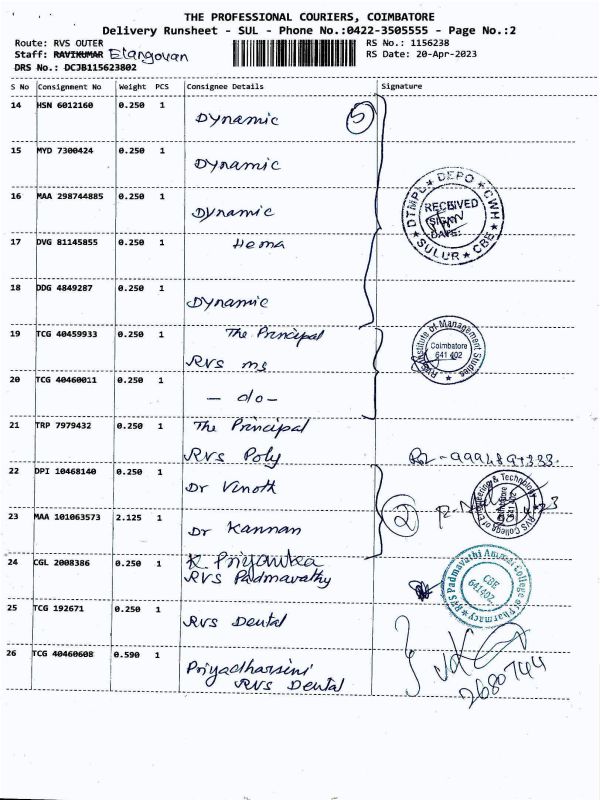 THE PROFESSIONAL COURIERS, COIMBATORE
Delivery Runsheet - SUL - Phone No.:0422-3505555 - Page No.:2
Route: RVS OUTER
RS No.: 1156238
Staff: RAVIKUMAR Elangovan
RS Date: 20-Apr-2023
DRS No.: DCJB115623802
S No Consignment No Weight PCS Consignee Details Signature
14 HSN 6012160 0.250 1 Dynamic 5
15 MYD 7300424 0.250 1 Dynamic
16 MAA 298744885 0.250 1 Dynamic
DTMPL DEPO CWH SULUR CBE
RECEIVED
SIGN
DATE:
17 DVG 81145855 0.250 1 Hema
18 DDG 4849287 0.250 1 Dynamic
19 TCG 40459933 0.250 1 The Principal
RVS ms
RVS Institute of Management Studies
Coimbatore
641 402
20 TCG 40460011 0.250 1 - do -
21 TRP 7979432 0.250 1 The Principal
RVS Poly
22 DPI 10468140 0.250 1 Dr Vinoth
2
RVS College of Engineering & Technology
641 402
23 MAA 101063573 2.125 1 Dr Kannan
24 CGL 2008386 0.250 1 K. Priyanka
RVS Padmavathy
RVS Padmavathi Ammal College of Pharmacy
CBE
641402
25 TCG 192671 0.250 1 RVS Dental
26 TCG 40460608 0.590 1 Priyadharsini
RVS Dental
2680744